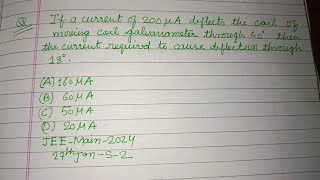 Q. If a current of 200 μA deflects the coil of
moving coil galvanometer through 60° then
the current required to cause deflection through
18°.
(A) 160 μA
(B) 60 μA
(C) 50 μA
(D) 20 μA
JEE-Main-2024
27th Jan-S-2